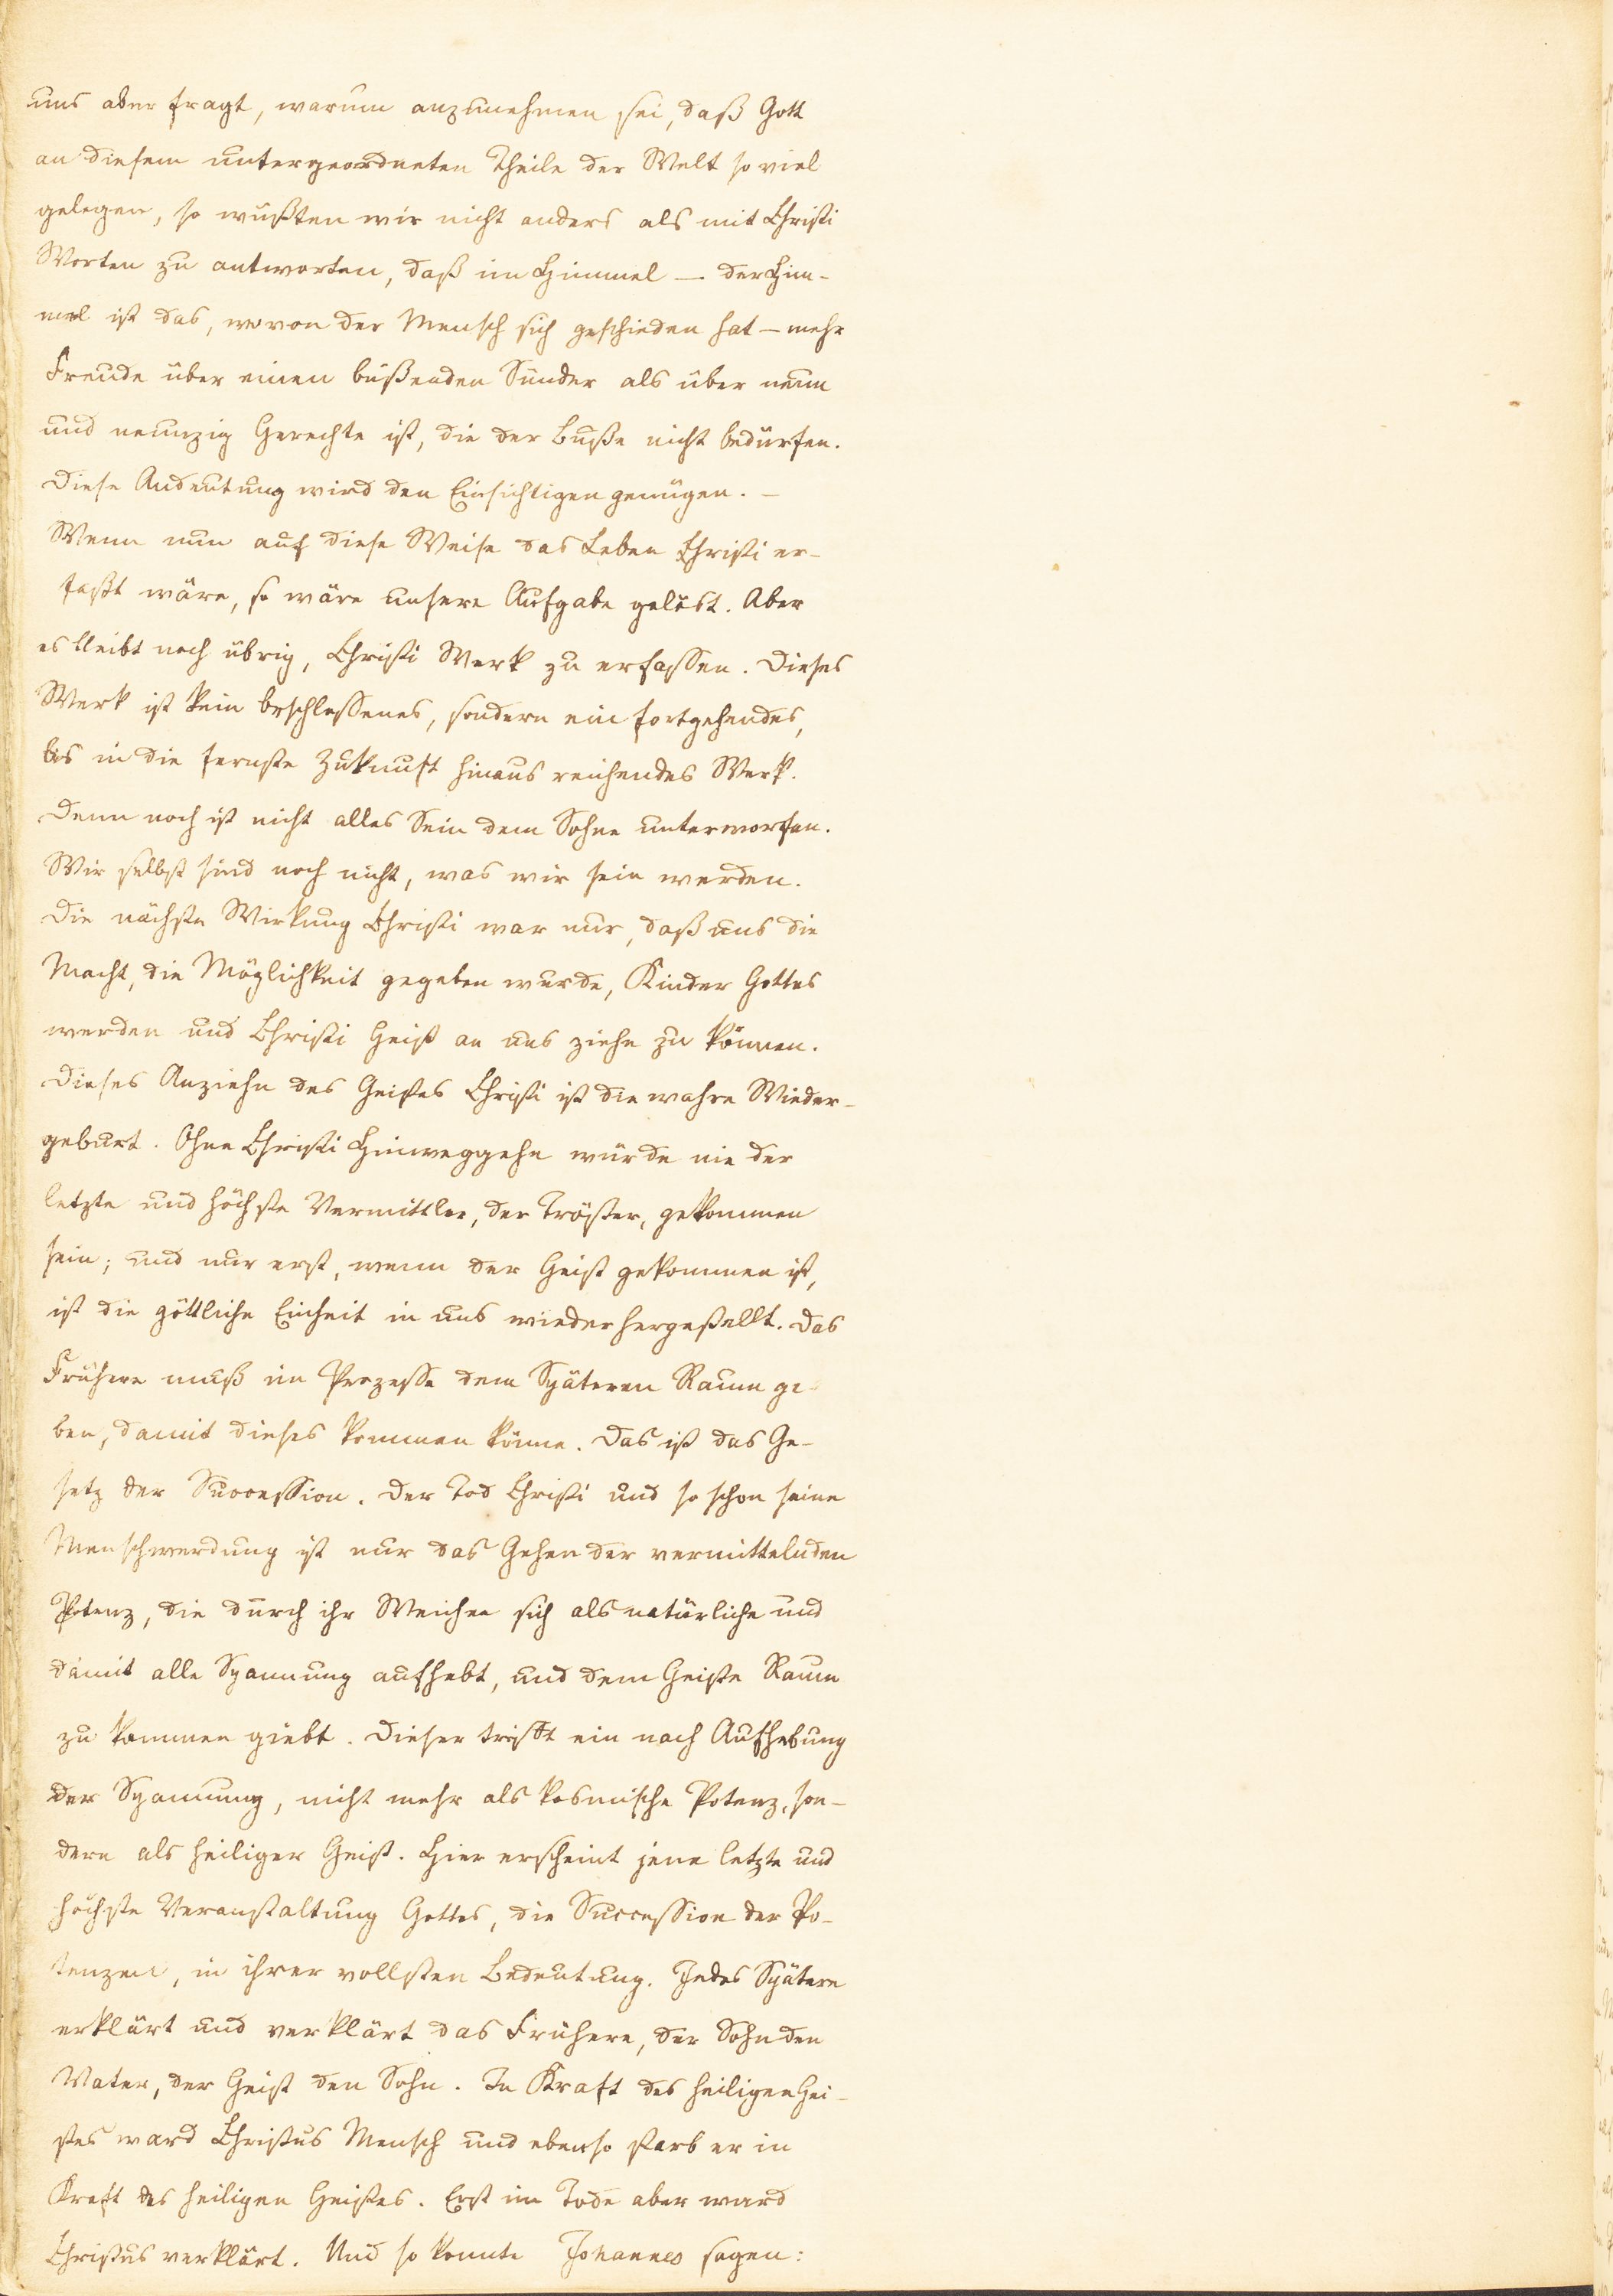 uns aber fragt, warum anzunehmen sei, daß Gott
an diesem untergeordneten Theile der Welt so viel
gelegen, so wüßten wir nicht anders als mit Christi
Worten zu antworten, daß im Himmel — der Him-
mel ist das, wovon der Mensch sich geschieden hat — mehr
Freude über einen büßenden Sünder als über neun
und neunzig Gerechte ist, die der Buße nicht bedürfen.
Diese Andeutung wird den Einsichtigen genügen. —
Wenn nun auf diese Weise das Leben Christi er-
faßt wäre, so wäre unsere Aufgabe gelöst. Aber
es bleibt noch übrig, Christi Werk zu erfassen. Dieses
Werk ist kein beschlossenes, sondern ein fortgehendes,
bis in die fernste Zukunft hinaus reichendes Werk.
Denn noch ist nicht alles Sein dem Sohne unterworfen.
Wir selbst sind noch nicht, was wir sein werden.
Die nächste Wirkung Christi war nur, daß uns die
Macht, die Möglichkeit gegeben wurde, Kinder Gottes
werden und Christi Geist an uns ziehn zu können.
Dieses Anziehn des Geistes Christi ist die wahre Wieder-
geburt. Ohne Christi Hinweggehn würde nie der
letzte und höchste Vermittler, der Tröster, gekommen
sein; und nur erst, wenn der Geist gekommen ist,
ist die göttliche Einheit in uns wiederhergestellt. Das
Frühere muß im Prozesse dem Späteren Raum ge-
ben, damit dieses kommen könne. Das ist das Ge-
setz der Succession. Der Tod Christi und so schon seine
Menschwerdung ist nur das Gehen der vermittelnden
Potenz, die durch ihr Weichen sich als natürliche und
damit alle Spannung aufhebt, und dem Geiste Raum
zu kommen giebt. Dieser trifft ein nach Aufhebung
der Spannung, nicht mehr als kosmische Potenz, son-
dern als heiliger Geist. Hier erscheint jene letzte und
höchste Veranstaltung Gottes, die Succession der Po-
tenzen, in ihrer vollsten Bedeutung. Jedes Spätere
erklärt und verklärt das Frühere, der Sohn den
Vater, der Geist den Sohn. In Kraft des heiligen Gei-
stes ward Christus Mensch und ebenso starb er in
Kraft des heiligen Geistes. Erst im Tode aber ward
Christus verklärt. Und so konnte Johannes sagen: